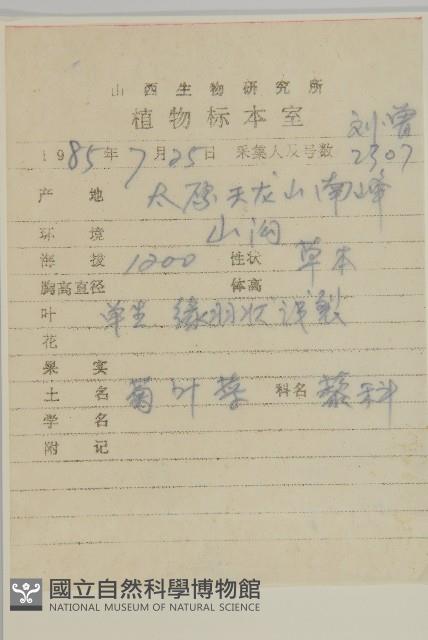 山西生物研究所
植物标本室
刘曾
1985年7月25日 采集人及号数 2307
产地 太原天龙山南峰
环境 山沟
海拔 1200 性状 草本
胸高直径 体高
叶 单生 缘羽状浅裂
花
果实
土名 菊叶藜 科名 藜科
学名
附记
國立自然科學博物館
NATIONAL MUSEUM OF NATURAL SCIENCE